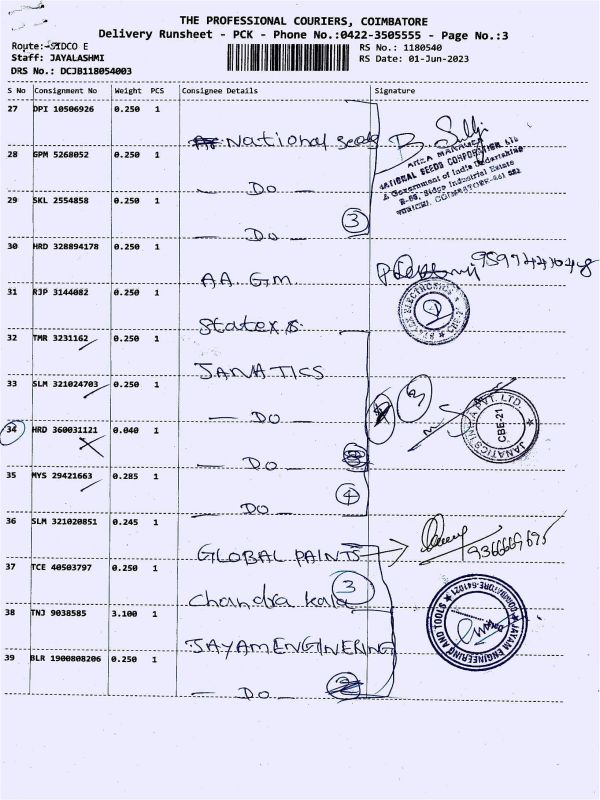 THE PROFESSIONAL COURIERS, COIMBATORE
Delivery Runsheet - PCK - Phone No.:0422-3505555 - Page No.:3
Route:-SIDCO E
RS No.: 1180540
Staff: JAYALASHMI
RS Date: 01-Jun-2023
DRS No.: DCJB118054003
S No Consignment No Weight PCS Consignee Details Signature
27 DPI 10506926 0.250 1
National Seeds
28 GPM 5268052 0.250 1
AREA MANAGER
NATIONAL SEEDS CORPORATION LTD
A Government of India Undertaking
Sidco Industrial Estate
COIMBATORE-641 021
— Do —
29 SKL 2554858 0.250 1
— Do —
3
30 HRD 328894178 0.250 1
AA Gm
31 RJP 3144082 0.250 1
Statexs
32 TMR 3231162 0.250 1
JANATICS
33 SLM 321024703 0.250 1
— Do —
3
JANATICS INDIA PVT. LTD.
CBE-21
34 HRD 360031121 0.040 1
— Do —
35 MYS 29421663 0.285 1
4
— Do —
36 SLM 321020851 0.245 1
GLOBAL PAINTS
9366669695
37 TCE 40503797 0.250 1
3
Chandra kala
38 TNJ 9038585 3.100 1
JAYAM ENGINERING
JAYAM ENGINEERING AND TOOLS
COIMBATORE-641021
39 BLR 1900808206 0.250 1
— Do —